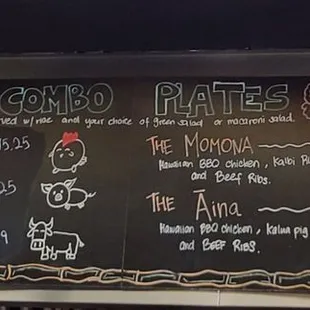 COMBO PLATES
ved w/ rice and your choice of green salad or macaroni salad.
15.25
THE MOMONA
Hawaiian BBQ chicken, Kalbi Ri
and Beef Ribs.
25
THE Āina
Hawaiian BBQ chicken, Kalua pig
and BEEF RIBS.
9